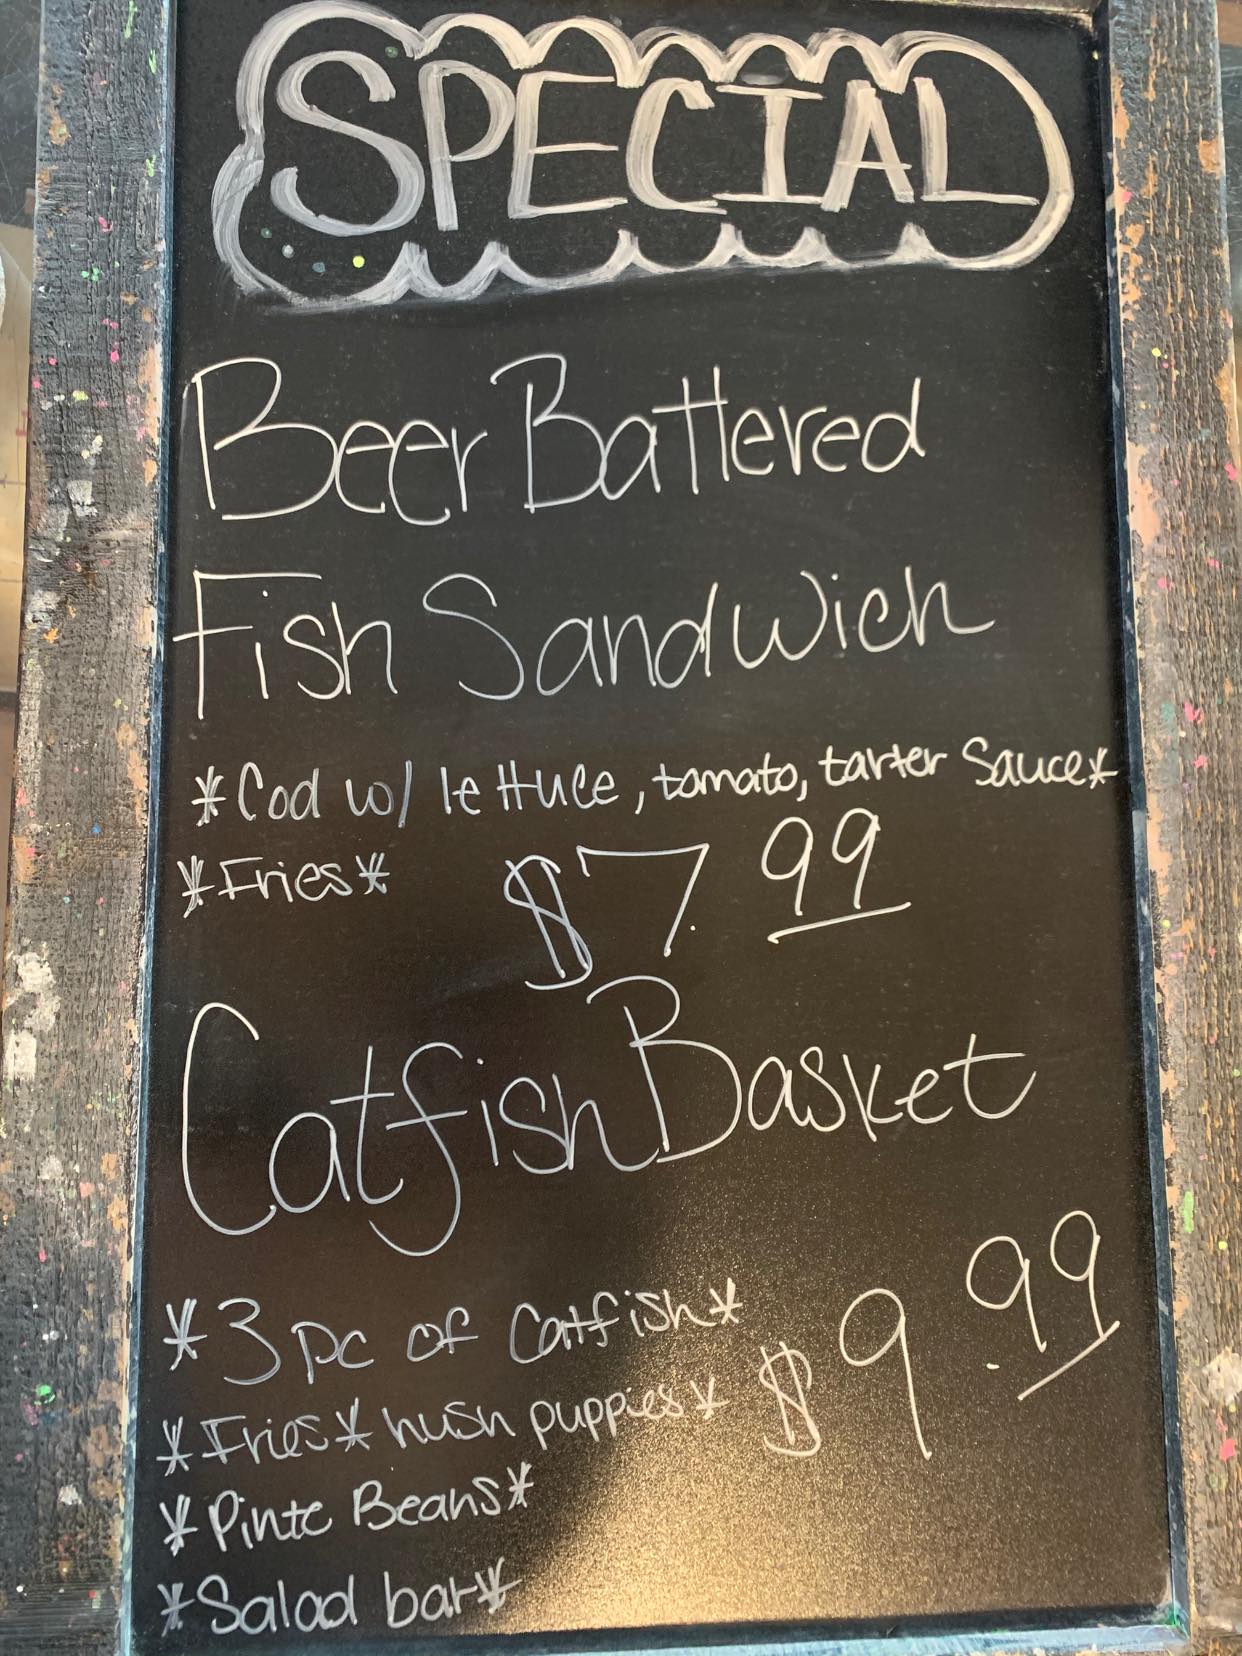 SPECIAL
Beer Battered
Fish Sandwich
*Cod w/ lettuce, tomato, tarter Sauce*
*Fries* $7.99
Catfish Basket
*3 pc of Catfish*
*Fries* hush puppies* $9.99
*Pinto Beans*
*Salad bar*